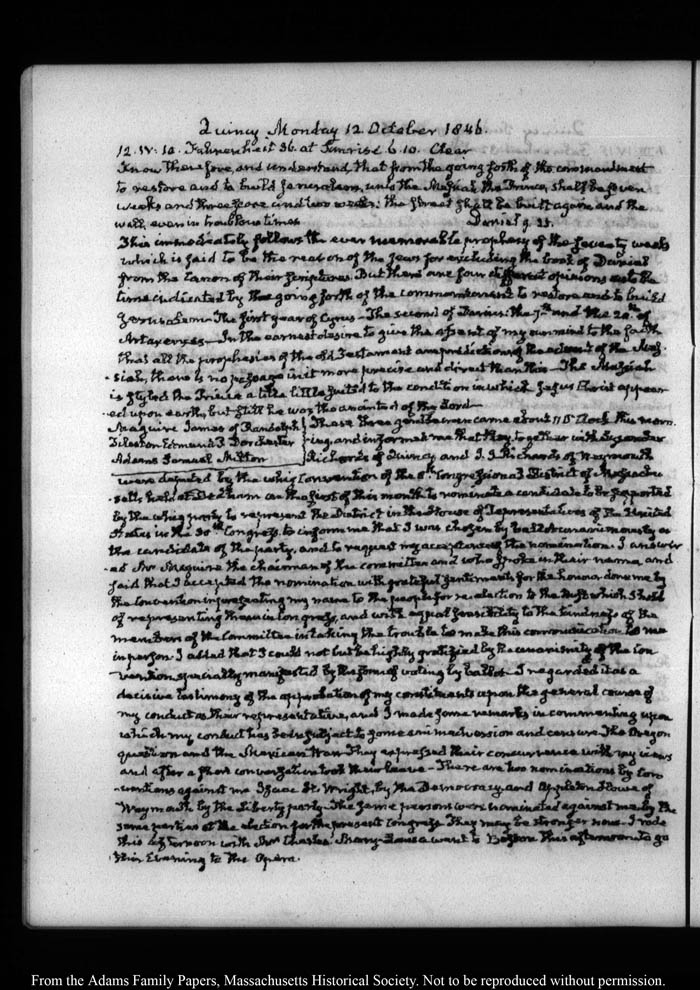 Quincy Monday 12 October 1846.
12. IV: 10. Fahrenheit 36. at Sunrise 6.10. Clear
Know therefore, and understand, that from the going forth of the commandment
to restore and to build Jerusalem, unto the Messiah the Prince, shall be seven
weeks and threescore and two weeks: the street shall be built again and the
wall, even in troublous times. Daniel 9. 25.
This immediately follows the ever memorable prophecy of the seventy weeks
which is said to be the reason of the Jews for excluding the book of Daniel
from the Canon of their Scriptures. But there are four different opinions as to the
time indicated by the going forth of the commandment to restore and to build
Jerusalem. The first year of Cyrus - The second of Darius. the 7th. and the 20th. of
Artaxerxes - In the earnest desire to give the assent of my own mind to the faith
that all the prophesies of the old Testament are predictions of the advent of the Mes-
siah, there is no passage in it more precise and direct than this - The Messiah
is styled the Prince a title little suited to the condition in which Jesus Christ appear
ed upon earth, but still he was the anointed of the Lord -
Maguire James of Randolph } These three gentlemen came about 11 O'Clock this morn
Tileston Edmund J. Dorchester ing, and informed me that they, together with Lysander
Adams Samuel Milton Richards of Quincy and J. S. Richards of Weymouth
were deputed by the whig Convention of the 8th. Congressional District of Massachu
setts held at Dedham on the first of this month to nominate a candidate to be supported
by the whig party to represent the District in the House of Representatives of the United
States in the 30th Congress to inform me that I was chosen by ballot unanimously as
the candidate of the party, and to request my acceptance of the nomination. I answer
ed Mr Maguire the chairman of the committee and who spoke in their name, and
said that I accepted the nomination with grateful sentiments for the honour done me by
the Convention in presenting my name to the people for re-election to the
of representing them in Congress, and with equal sensibility to the kindness of the
members of the Committee in taking the trouble to make this communication to me
in person. I added that I could not but be highly gratified by the unanimity of the Con
vention specially manifested by the form of voting by ballot. I regarded it as a
decisive testimony of the approbation of my constituents upon the general course of
my conduct as their representative, and I made some remarks in commenting upon
which my conduct has been subject to some animadversion and censure. The Oregon
question and the Mexican War. They expressed their concurrence with my views
and after a short conversation took their leave - There are two nominations by Con
ventions against me Isaac H. Wright, by the Democracy and Appleton Howe of
Weymouth by the Liberty party. The same persons were nominated against me by the
same parties at the election for the present Congress. They may be stronger now. I rode
this afternoon with Mrs Charles. Mary Louisa went to Boston this afternoon to go
this Evening to the Opera.
From the Adams Family Papers, Massachusetts Historical Society. Not to be reproduced without permission.